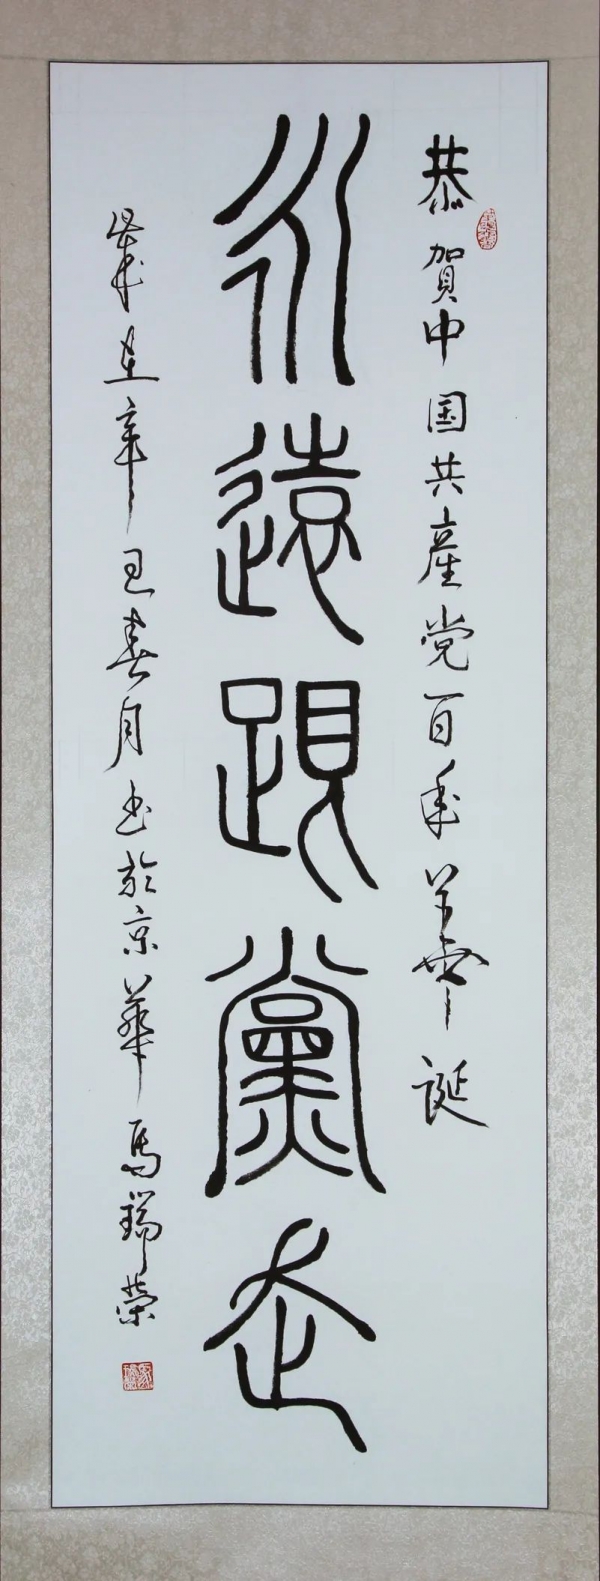 恭賀中国共產党百年華誕
永遠跟黨走
歲在辛丑春月书於京華馬瑞荣